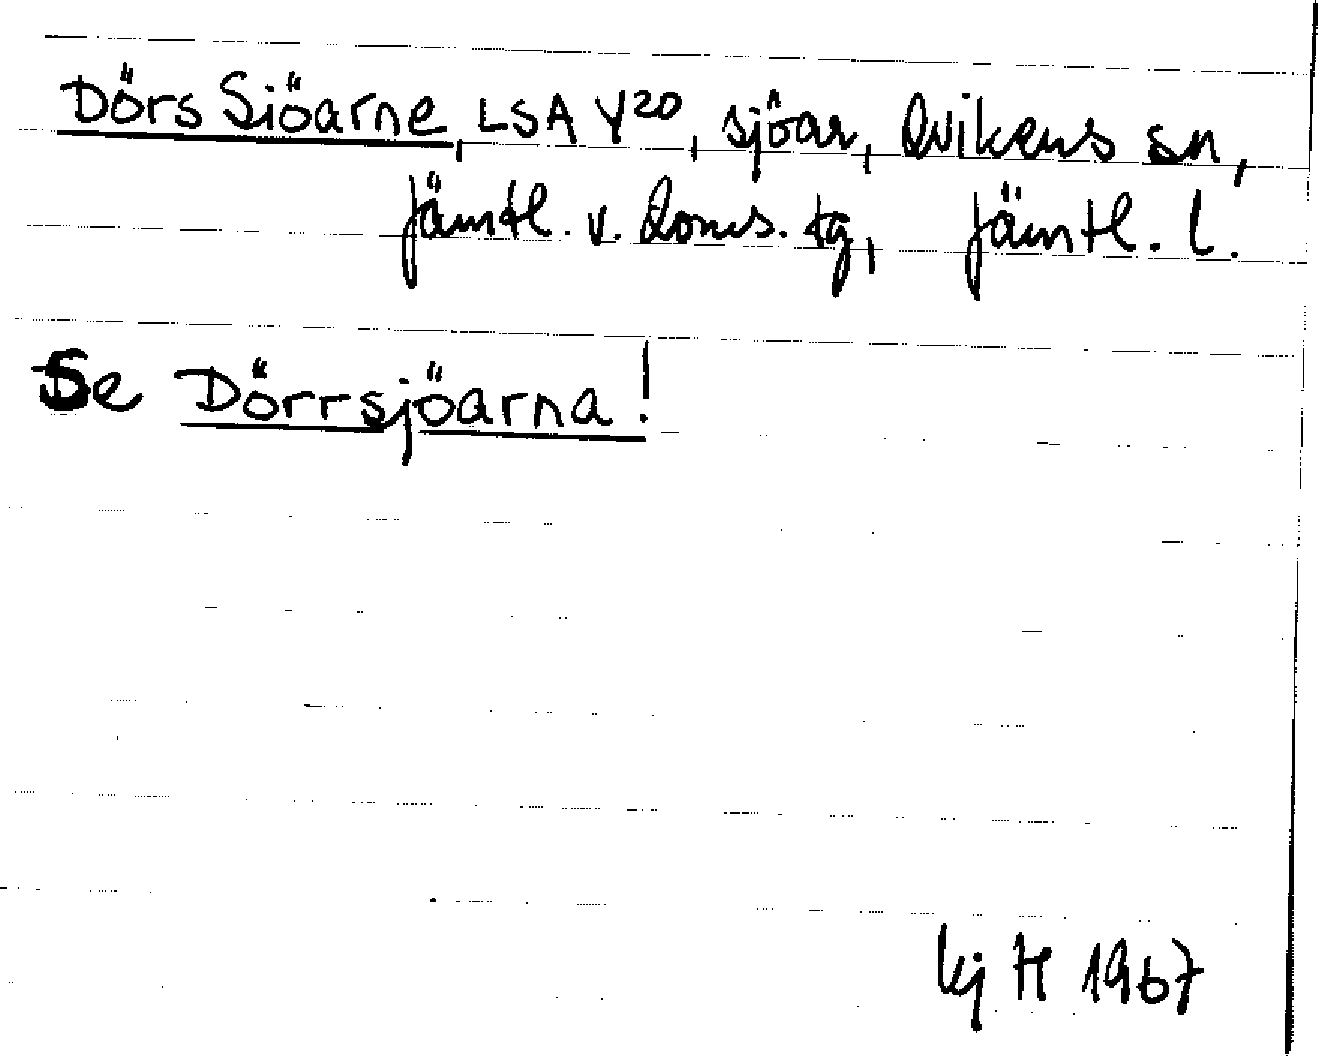 Dörs Siöarne, LSA Y20, sjöar, Qvikens sn,
Jämtl. v. doms. tg, Jämtl. l.
Se Dörrsjöarna!
1967